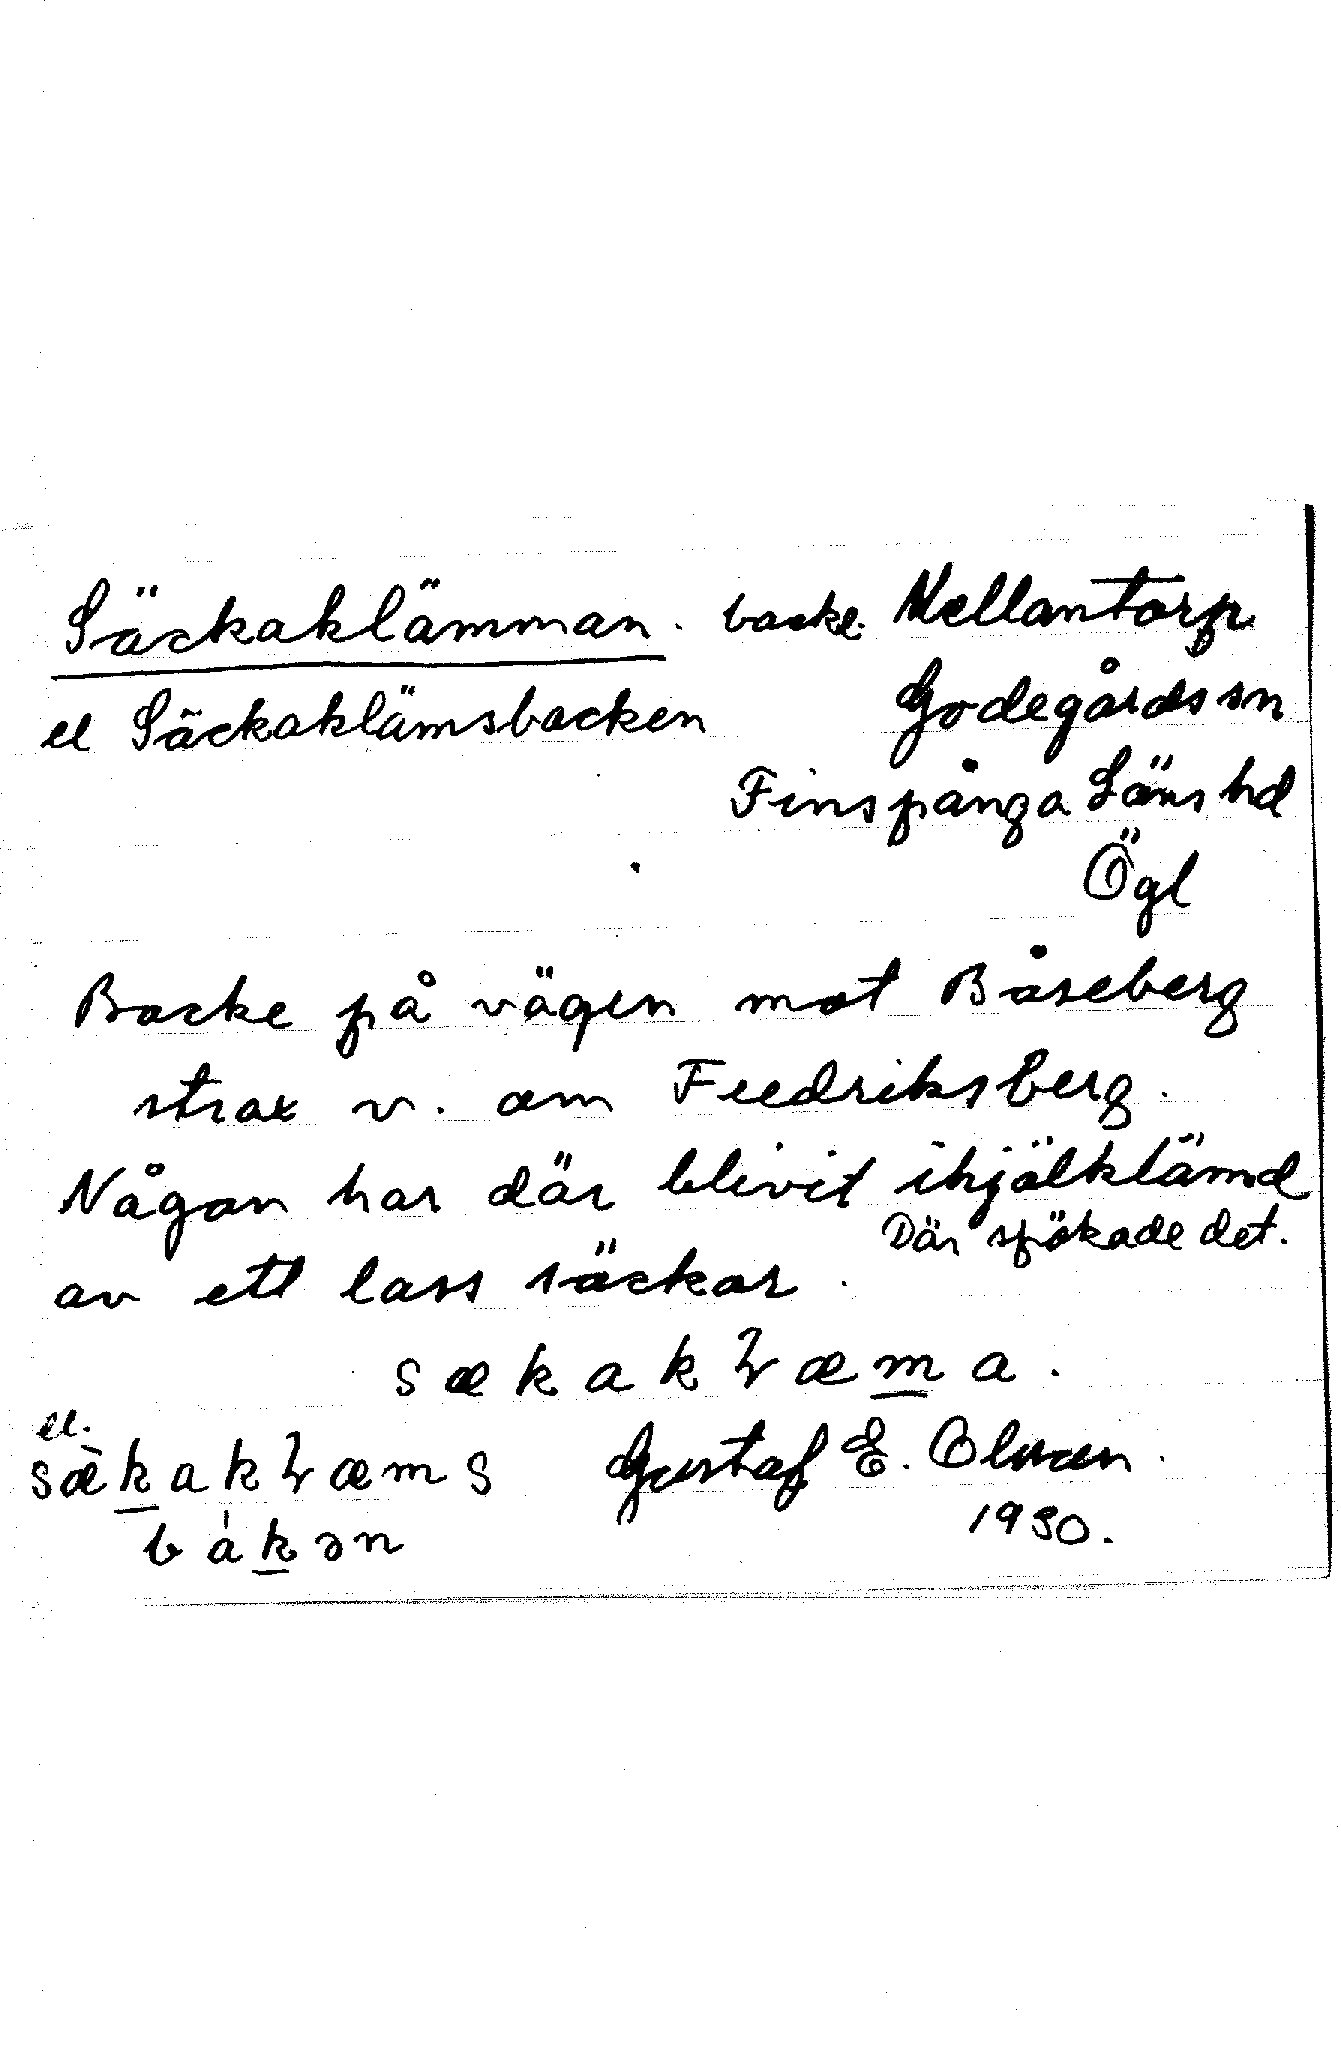 Säckaklämman. backe. Mellantorp.
el Säckaklämsbacken Godegårds sn
Finspånga Läns hd
Ögl
Backe på vägen mot Båseberg
strax v. om Fredriksberg.
Någon har där blivit ihjälklämd
av ett lass säckar. Där spökade det.
sækakꝇæma.
el.
sæ̀kakꝇæms Gustaf E. Olsson.
bákən 1930.